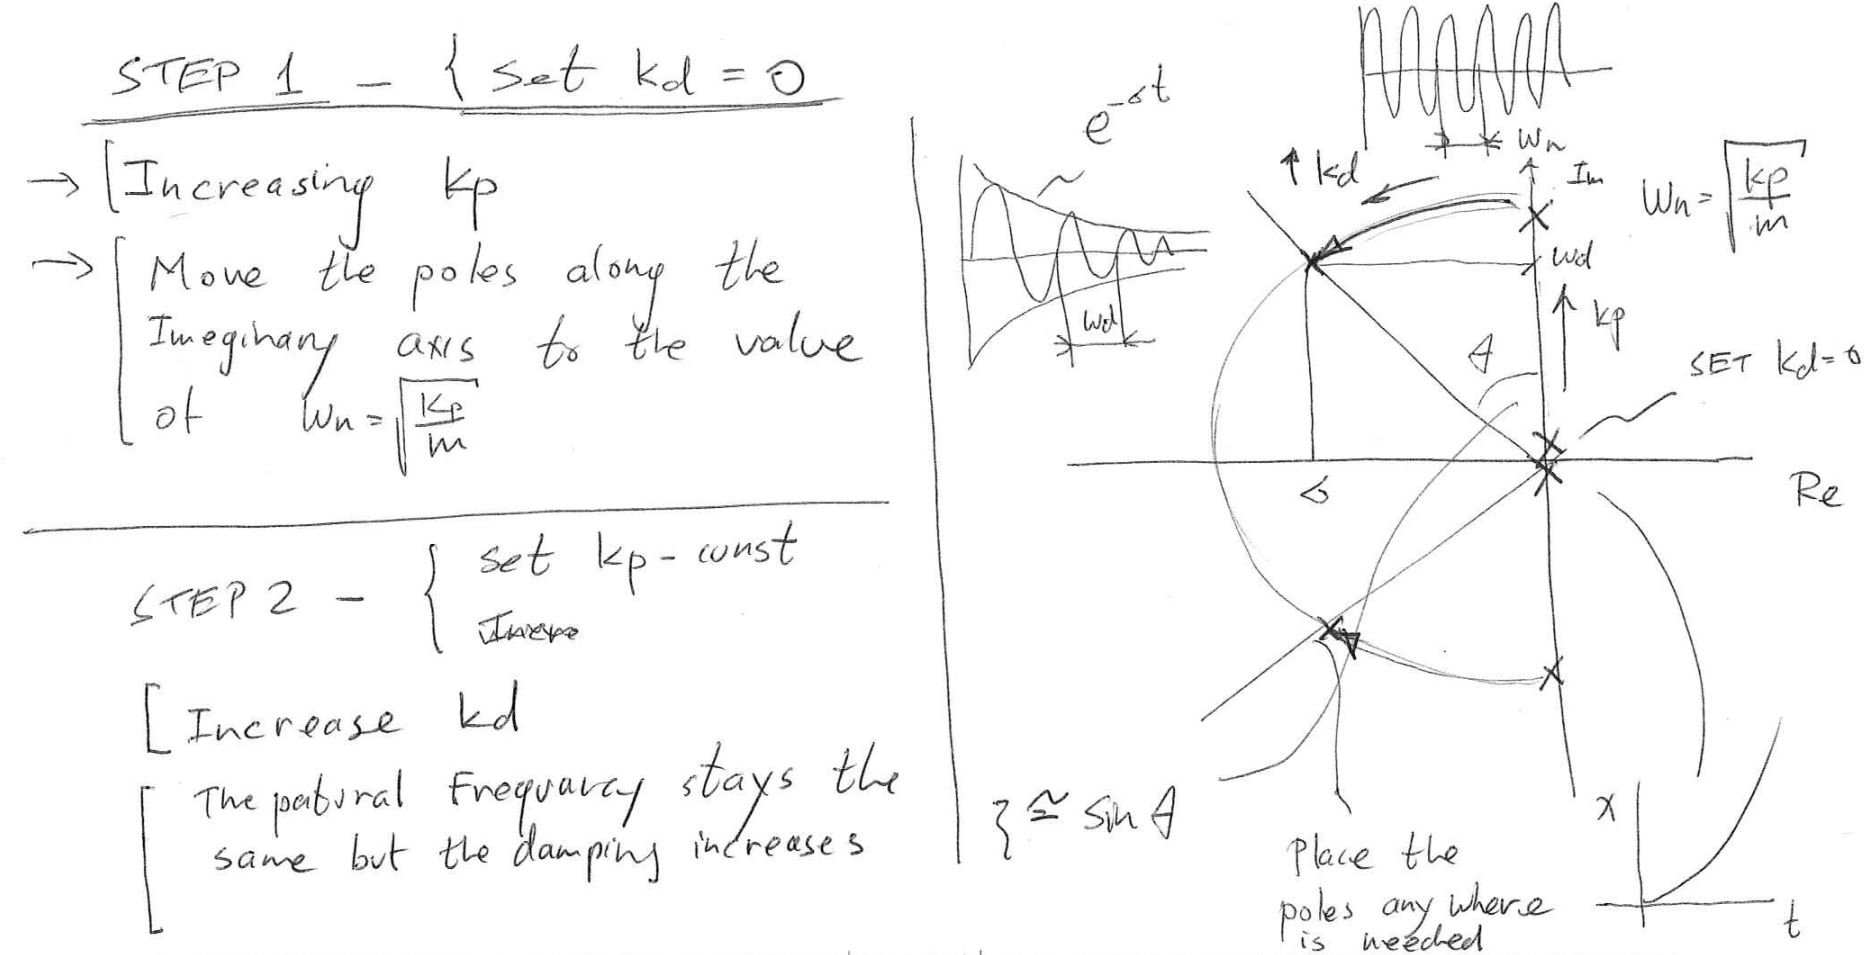 STEP 1 - { set kd = 0
→ [Increasing kp
→ [Move the poles along the
Imeginary axis to the value
of Wn = √(kp/m)
STEP 2 - { set kp - const
[Increase kd
[The natural Frequvavcy stays the
same but the damping increases
e^-σt
wd
wn
↑ kd
Im
Wn = √(kp/m)
wd
↑ kp
θ
SET kd=0
σ
Re
ξ ≅ sin θ
Place the
poles any where
is needed
x
t